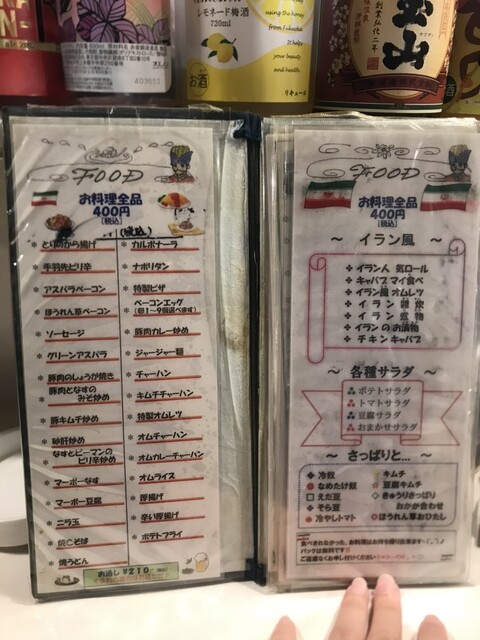 レモネード梅酒
720ml
using the honey
from Fukuoka.
It helps
your beauty
and health.
お酒
リキュール
宝山
FOOD
お料理全品
400円
[税込]
(税込)
とりのから揚げ
手羽先ピリ辛
アスパラベーコン
ほうれん草ベーコン
ソーセージ
グリーンアスパラ
豚肉のしょうが焼き
豚肉となすの
みそ炒め
豚キムチ炒め
砂肝炒め
なすとピーマンの
ピリ辛炒め
マーボーなす
マーボー豆腐
ニラ玉
焼きそば
焼うどん
カルボナーラ
ナポリタン
特製ピザ
ベーコンエッグ
(卵1~9個選べます)
豚肉カレー炒め
ジャージャー麺
チャーハン
キムチチャーハン
特製オムレツ
オムチャーハン
オムカレーチャーハン
オムライス
厚揚げ
辛い厚揚げ
ポテトフライ
お通し ¥210
FOOD
お料理全品
400円
[税込]
～ イラン風 ～
イラン人 気ロール
キャバブマイ食べ
イラン風 オムレツ
イラン 雑炊
イラン 煮物
イランのお漬物
チキンキャバブ
～ 各種サラダ ～
ポテトサラダ
トマトサラダ
豆腐サラダ
おまかせサラダ
～ さっぱりと... ～
冷奴
なめたけ奴
えだ豆
そら豆
冷やしトマト
キムチ
豆腐キムチ
きゅうりさっぱり
おかか合わせ
ほうれん草おひたし
食べきれなかった、お料理はお持ち帰り出来ます
パックは無料です!!
ご遠慮なくお申し付けください